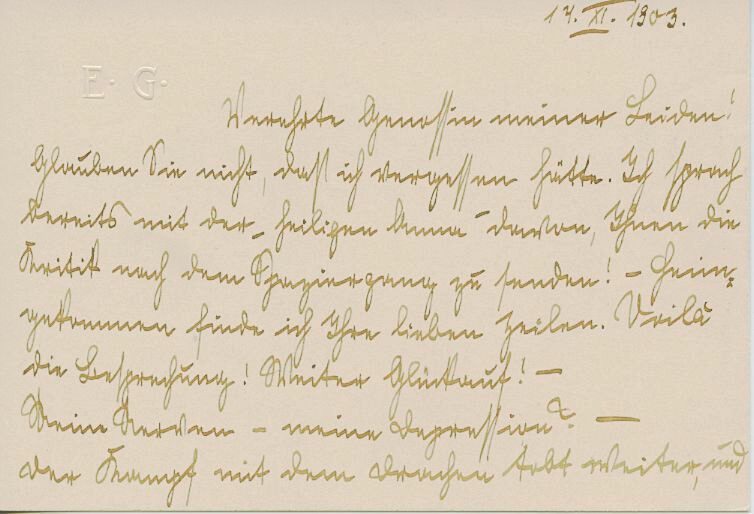 14. XI. 1903.
E. G.
Verehrte Genossin meiner Leiden!
Glauben Sie nicht, daß ich vergessen hätte. Ich sprach
bereits mit der „heiligen Anna“ davon, Ihnen die
Kritik nach dem Spaziergang zu senden! – Heim-
gekommen finde ich Ihre lieben Zeilen. Voilà
die Besprechung! Weiter Glückauf! —
Meine Nerven – meine Depression? —
Der Kampf mit dem Drachen tobt weiter, und